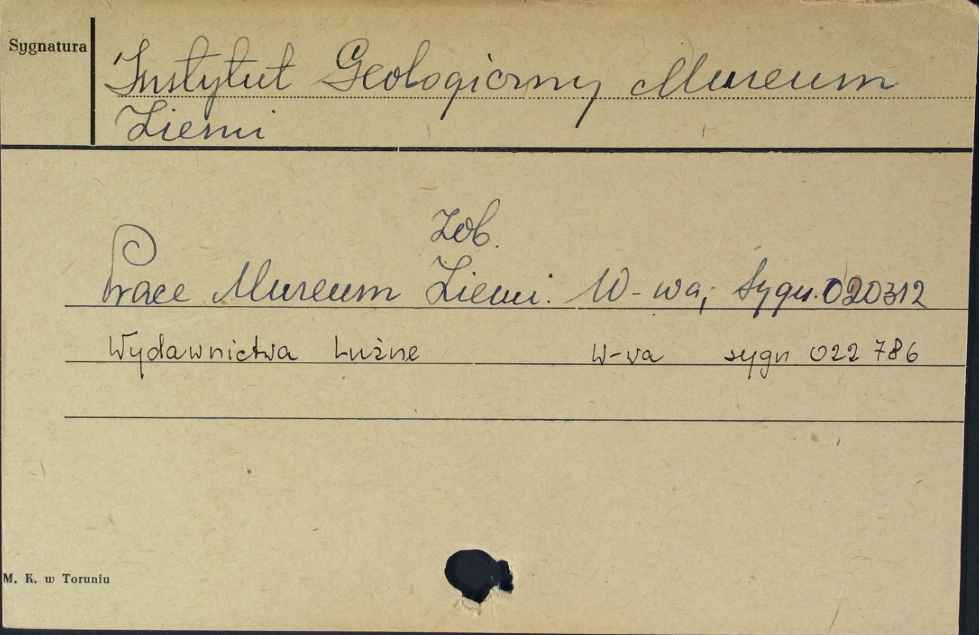 Sygnatura
Instytut Geologiczny Muzeum
Ziemi
Zob.
Prace Muzeum Ziemi. W-wa, Sygn. 020312
Wydawnictwa Luźne W-wa sygn 022 786
M. K. w Toruniu